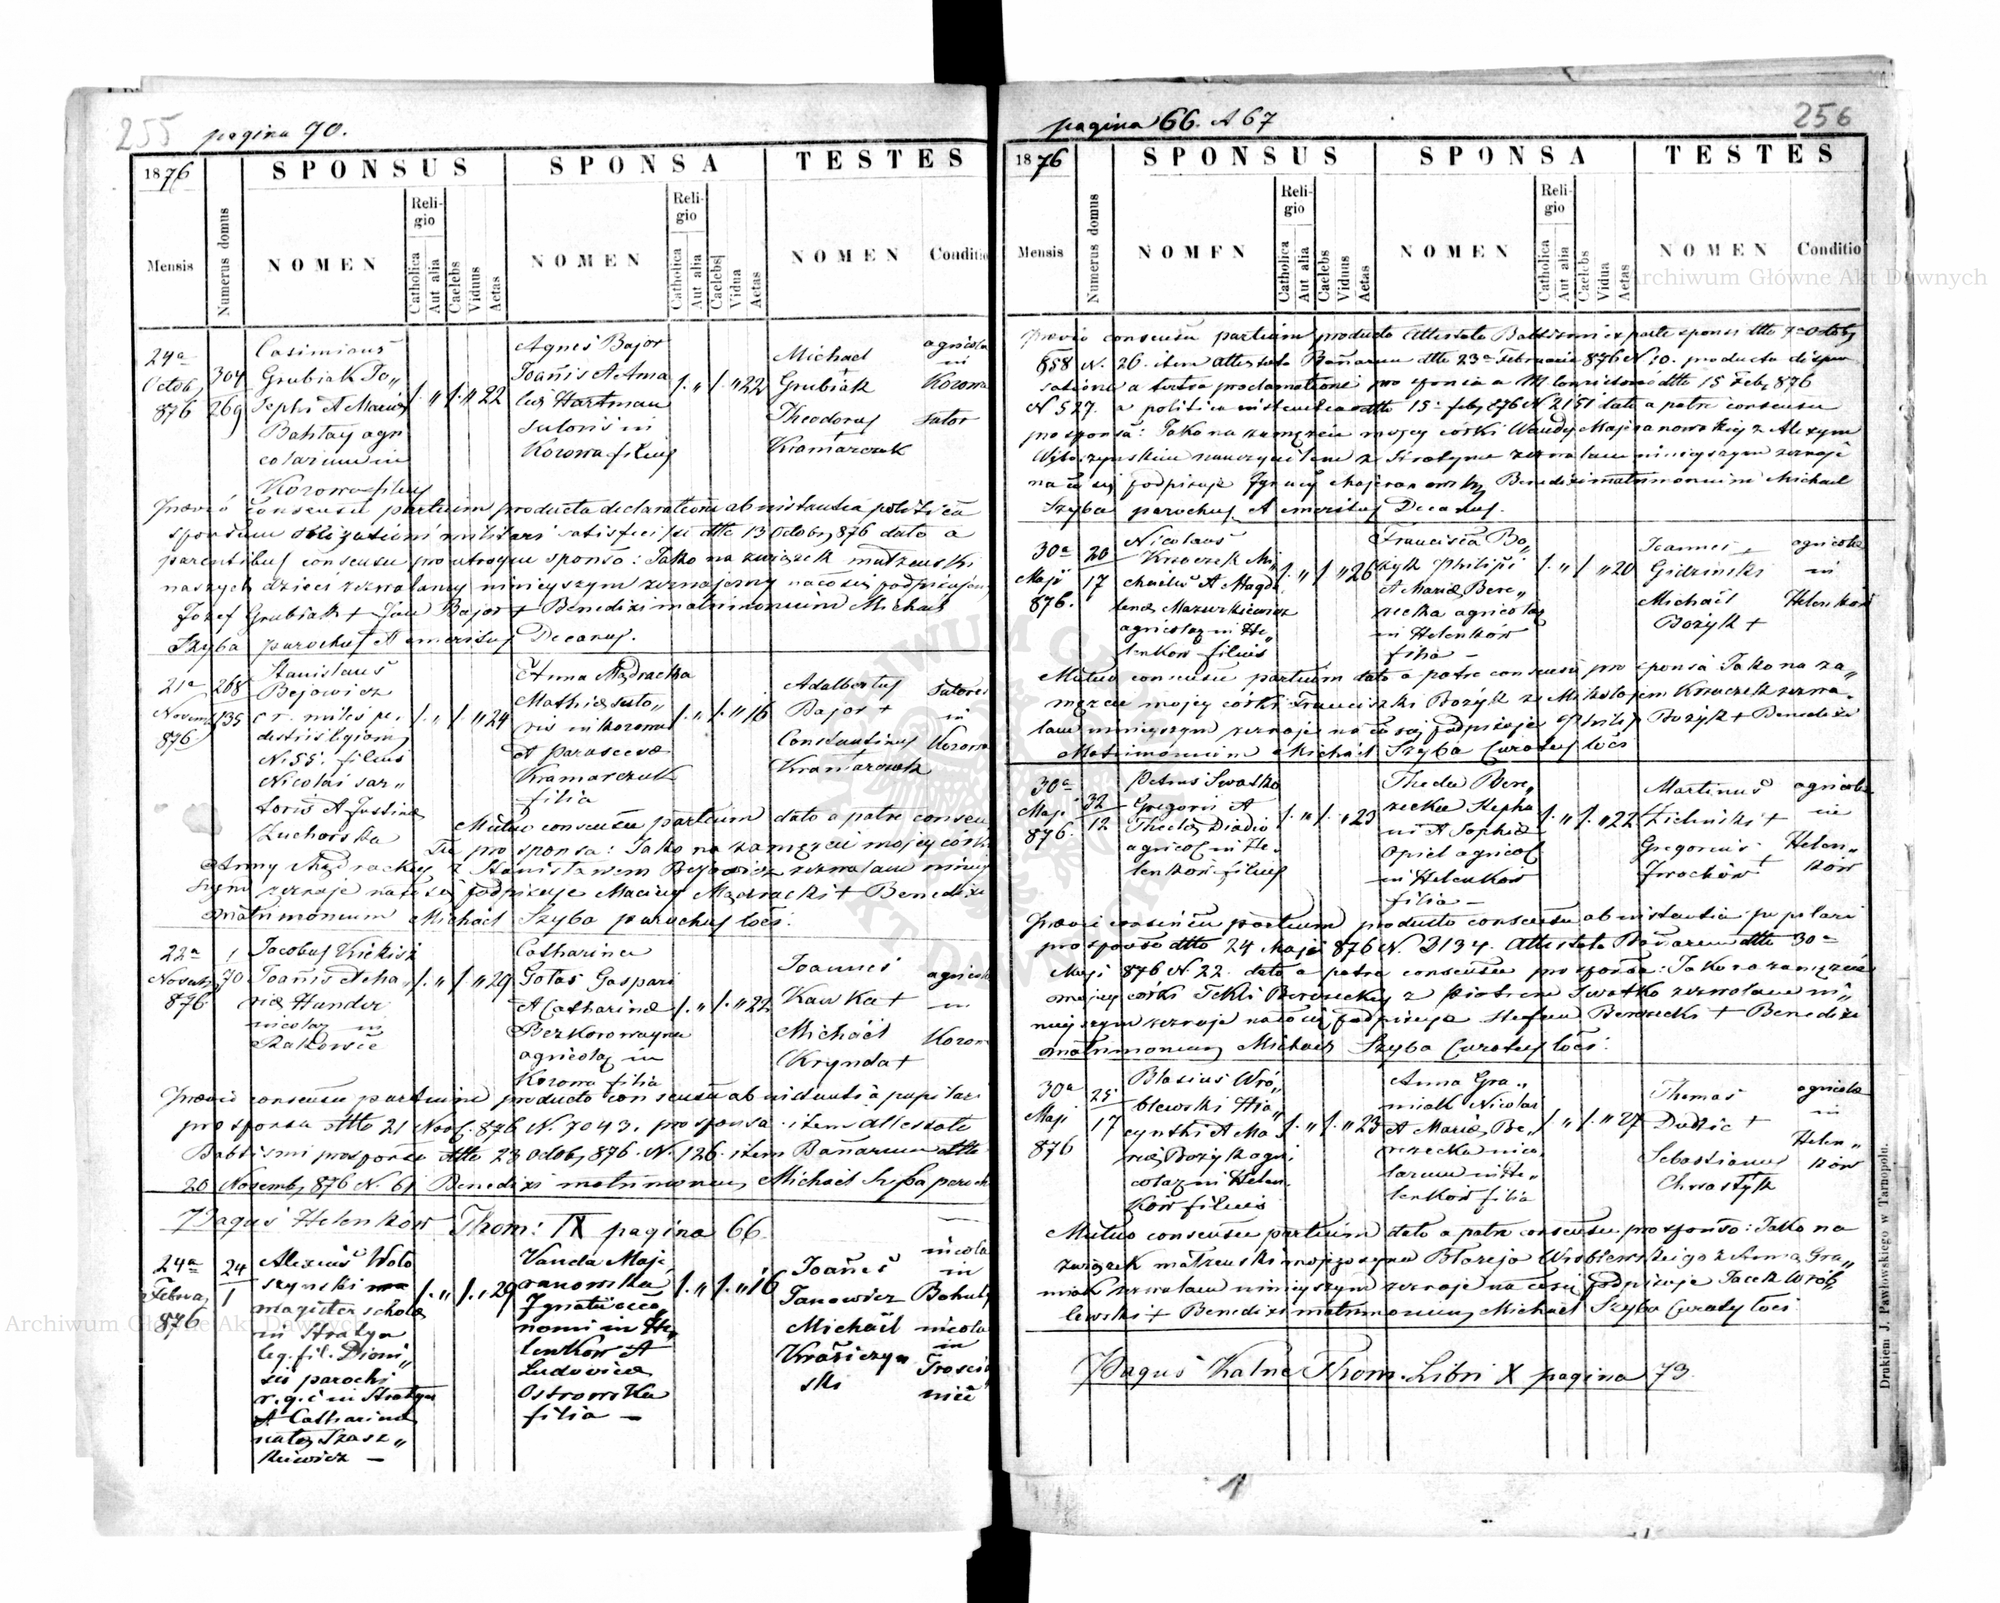 255 pagina 70.
1876
SPONSUS
SPONSA
TESTES
Mensis
Numerus domus
NOMEN
Religio
Catholica
Aut alia
Caelebs
Viduus
Aetas
NOMEN
Religio
Catholica
Aut alia
Caelebs
Vidua
Aetas
NOMEN
Conditio
24a
Octob,
876
304
269
Casimirus
Grubiak Jo„
sephi et Maria
Bahtay agri
colarum in
Korowa filius
22
Agnes Bajor
Joanis et Ama
lia Hartman
sutoris in
Korowa filia
22
Michael
+
Grubiak
Theodorus
Kramarczuk
agricola
in
Korowa
sutor
Praevio consensu partium producta declaratione ab instantia politica
sponsum obligationi militari satisfecisse dtto 13 Octob, 876 dato a
parentibus consensu pro utroque sponso: Jako na związek małżenski
naszych dzieci zezwalamy niniejszym zeznajemy na co się podpisujemy
Józef Grubiak + Jan Bajor + Benedixi matrimonium Michael
Szyba parochus et emeritus Decanus.
21a
Novemb
876
268
135
Stanislaus
Bejowicz
c. r. miles pe„
destris legionis
N. 55. filius
Nicolai sar„
toris et Justina
Zuchorska
24
Anna Mądracka
Mathia suto„
ris in Korowa
et Parasceva
Kramarczuk
filia
16
Adalbertus
Bajor +
Constantinus
Kramarczuk
sutores
in
Korowa
Mutuo consensu partium dato a patre consen
su pro sponsa: Jako na zamęzcie mojej córki
Anny Mądrackiej z Stanisławem Bejowicz zezwalam niniej
szym zeznaje na co się podpisuje Maciej Mądracki + Benedixi
matrimonium Michael Szyba parochus loci.
22a
Novemb
876
1
70
Jacobus Kiekisz
Joanis et Ma„
ria Hunder
nicolar in
Szalkowce
29
Catharina
Gołas Gaspari
et Catharina
Bezkorowayna
agricolar in
Korowa filia
22
Joannes
Kawka +
Michael
Krynda +
agricola
in
Korowa
Praevio consensu partium producto consensu ab instantia pupilari
pro sponsa dtto 21 Novb. 876 N. 7043, pro sponsa item attestato
Babtismi pro sponso dtto 28 Octob, 876. N. 126. item Banarum dtto
20 Novemb, 876 N. 61 Benedixi matrimonium Michael Szyba paroch
Pagus Helenków Thom: IX pagina 66
24a
Februa,
876
24
1
Alexius Woło
szynski
magister schola
in Stratyn
leg. fil. Dioni„
sii parochi
r. g. c in Stratyn
et Catharina
nata Szasz„
kiewicz —
29
Vanda Maje
ranowska
Ignatii oeco„
nomi in He„
lenkow et
Ludovica
Ostrowska
filia —
16
Joanes
Janowicz
Michael
Krasiczyn
ski
nicola
in
Bohut
nicola
in
Trosciā
niec
256
pagina 66. et 67
1876
SPONSUS
SPONSA
TESTES
Mensis
Numerus domus
NOMEN
Religio
Catholica
Aut alia
Caelebs
Viduus
Aetas
NOMEN
Religio
Catholica
Aut alia
Caelebs
Vidua
Aetas
NOMEN
Conditio
Praevio consensu partium producto attestato Babtismi ex parte sponsi dtto 7a Octob,
858 N. 26. item attestato Banarum dtto 23a Februarii 876 N. 30. producta dispen
satione a tertia proclamatione pro sponsa a dtto 15 Feb, 876
N 527. a politica instantia dtto 15 feb, 876 N 2151 dato a patre consensu
pro sponsa: Jako na zamęzcie mojej córki Wandy Majeranowskiej z Alexym
Wołoszynskim nauczycielem z Stratyna zezwalam niniejszym zeznaje
na co się podpisuje Ignacy Majeranowski Benedixi matrimonium Michael
Szyba parochus et emeritus Decanus.
30a
Maji
876.
20
17
Nicolaus
Kraczek Mi„
chaelis et Magda
lena Mazurkiewicz
agricolar in He„
lenkow filius
26
Francisca Bo„
żyk Philipi
et Maria Bere„
zecka agricolar
in Helenków
filia —
20
Joannes +
Gidzinski
Michael
Bożyk +
agricola
in
Helenków
Mutuo consensu partium dato a patre consensu pro sponsa Jako na za„
męzcie mojej córki Franciszki Bożyk z Mikołajem Kraczek zezwa„
lam niniejszym zeznaje na co się podpisuje Philip Bożyk + Benedixi
Matrimonium Michael Szyba Curatus loci
30a
Maji
876.
32
12
Petrus Swatko
Gregorii et
Thecla Diadio
agricol in He„
lenków filius
23
Thecla Bere„
zecka Stepha
ni et Sophia
Opiel agricol
in Helenkow
filia —
22
Martinus
Zielinski +
Gregorius
+
Jwachów
agricola
in
Helen„
ków
Praevio consensu partium producto consensu ab instantia pupilari
pro sponso dtto 24 Maji 876 N. 3134. Attestato Banarum dtto 30a
Maji 876 N. 22. dato a patre consensu pro sponsa: Jako na zamęzcie
mojej córki Tekli Berezeckiej z Piotrem Swatko zezwalam ni„
niejszym zeznaje na co się podpisuje Stefan Berezecki + Benedixi
matrimonium Michael Szyba Curatus loci.
30a
Maji
876
25
17
Blasius Wró„
blewski Hia„
cynthi et Ma
ria Bożyk agri
colar in Helen
kow filius
23
Anna Gra„
miak Nicolai
et Maria Be„
rezecka nico„
larum in He„
lenkow filia
27
Thomas
Dudzic +
Sebastianus
Chrastyk
agricola
in
Helen„
ków
Mutuo consensu partium dato a patre consensu pro sponso: Jako na
związek małzenski mojego syna Błazeja Wroblewskiego z Anna Gra„
miak zezwalam niniejszym zeznaje na co się podpisuje Jacek Wrób„
lewski + Benedixi matrimonium Michael Szyba Curatus loci
Pagus Kalne Thom. Libri X pagina 73.
Drukiem J. Pawłowskiego w Tarnopolu.
Archiwum Główne Akt Dawnych
Archiwum Główne Akt Dawnych
ARCHIWUM GŁÓWNE AKT DAWNYCH